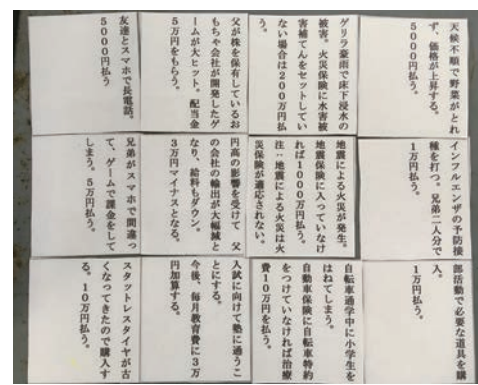 天候不順で野菜がとれ
ず、価格が上昇する。
5000円払う。
ゲリラ豪雨で床下浸水の
被害。火災保険に水害被
害補てんをセットしてい
ない場合は200万円払
う。
父が株を保有しているお
もちゃ会社が開発したゲ
ームが大ヒット。配当金
5万円をもらう。
友達とスマホで長電話。
5000円払う
インフルエンザの予防接
種を打つ。兄弟二人分で
1万円払う。
地震による火災が発生。
地震保険に入っていなけ
れば1000万円払う。
注：地震による火災は火
災保険が適応されない。
円高の影響を受けて 父
の会社の輸出が大幅減と
なり、給料もダウン。
3万円マイナスとなる。
兄弟がスマホで間違っ
て、ゲームで課金をして
しまう。5万円払う。
部活動で必要な道具を購
入。
1万円払う。
自転車通学中に小学生を
はねてしまう。
自動車保険に自転車特約
をつけていなければ治療
費10万円を払う。
入試に向けて塾に通うこ
とにする。
今後、毎月教育費に3万
円加算する。
スタットレスタイヤが古
くなってきたので購入す
る。10万円払う。